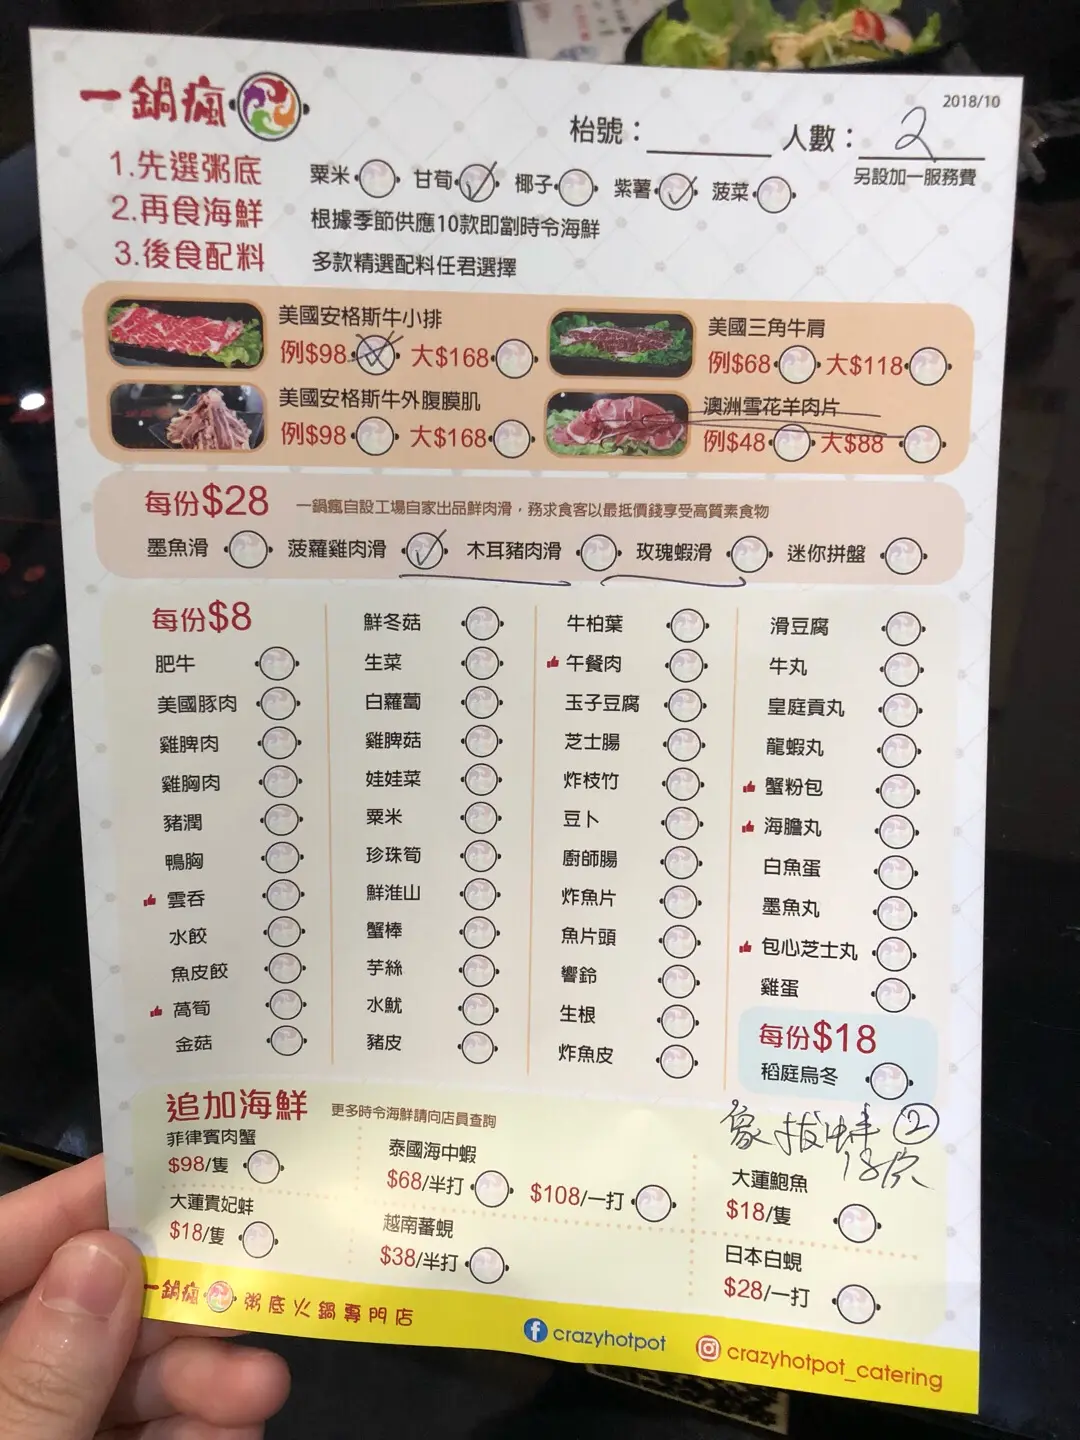 一鍋瘋
2018/10
枱號： 人數：2
另設加一服務費
1.先選粥底 粟米 甘荀 椰子 紫薯 菠菜
2.再食海鮮 根據季節供應10款即劏時令海鮮
3.後食配料 多款精選配料任君選擇
美國安格斯牛小排
例$98 大$168
美國三角牛肩
例$68 大$118
美國安格斯牛外腹膜肌
例$98 大$168
澳洲雪花羊肉片
例$48 大$88
每份$28 一鍋瘋自設工場自家出品鮮肉滑，務求食客以最抵價錢享受高質素食物
墨魚滑 菠蘿雞肉滑 木耳豬肉滑 玫瑰蝦滑 迷你拼盤
每份$8
肥牛
美國豚肉
雞脾肉
雞胸肉
豬潤
鴨胸
雲吞
水餃
魚皮餃
萵筍
金菇
鮮冬菇
生菜
白蘿蔔
雞脾菇
娃娃菜
粟米
珍珠筍
鮮淮山
蟹棒
芋絲
水魷
豬皮
牛柏葉
午餐肉
玉子豆腐
芝士腸
炸枝竹
豆卜
廚師腸
炸魚片
魚片頭
響鈴
生根
炸魚皮
滑豆腐
牛丸
皇庭貢丸
龍蝦丸
蟹粉包
海膽丸
白魚蛋
墨魚丸
包心芝士丸
雞蛋
每份$18
稻庭烏冬
追加海鮮 更多時令海鮮請向店員查詢
象拔蚌 2
菲律賓肉蟹
$98/隻
泰國海中蝦
$68/半打 $108/一打
大蓮鮑魚
$18/隻
大蓮貴妃蚌
$18/隻
越南蕃蜆
$38/半打
日本白蜆
$28/一打
一鍋瘋 粥底火鍋專門店
crazyhotpot
crazyhotpot_catering